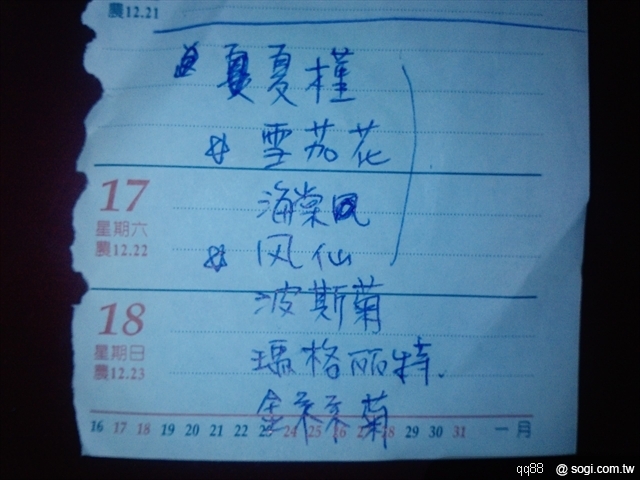 農12.21
夏夏槿
雪茄花
17
星期六
農12.22
海棠
凤仙
波斯菊
18
星期日
農12.23
瑪格丽特.
金
菊
16 17 18 19 20 21 22 23 24 25 26 27 28 29 30 31 一月
qq88 @ sogi.com.tw